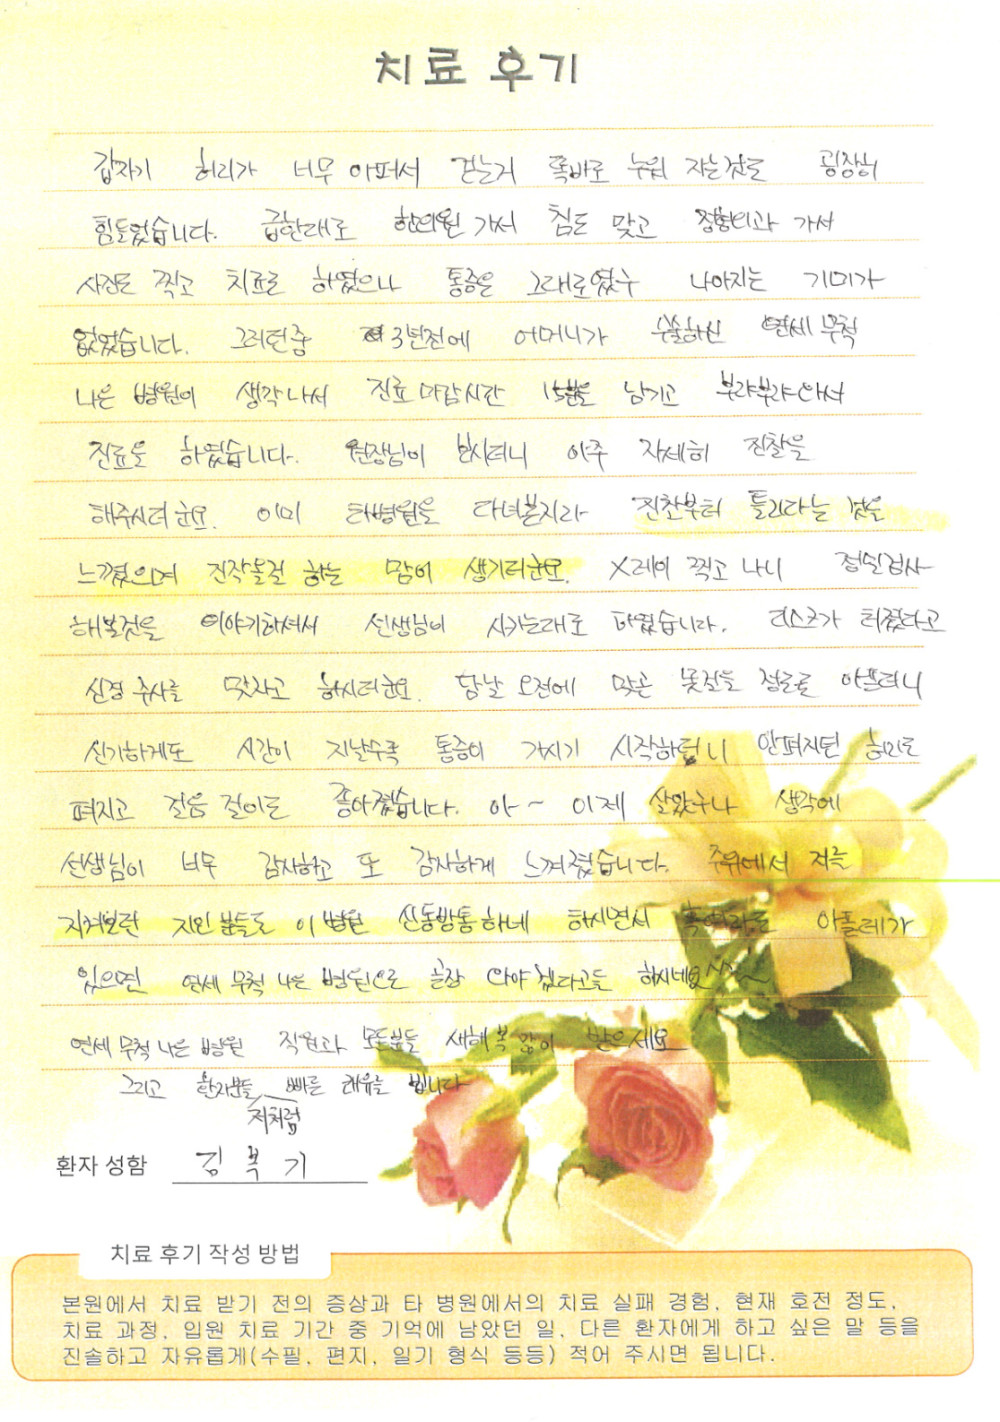 치료 후기
갑자기 허리가 너무 아퍼서 걷는거 똑바로 누워 자는것도 굉장히
힘들었습니다. 급한대로 한의원 가서 침도 맞고 정형외과 가서
사진도 찍고 치료도 하였으나 통증은 그대로였구 나아지는 기미가
없었습니다. 그러던중 3년전에 어머니가 수술하신 연세무척
나은 병원이 생각나서 진료마감시간 15분을 남기고 부랴부랴와서
진료를 하였습니다. 원장님이 보시더니 아주 자세히 진찰을
해주시더군요. 이미 타병원을 다녀본지라 진찰부터 틀리다는 것을
느꼈으며 진작올걸 하는 맘이 생기더군요. X레이 찍고 나니 정밀검사
해볼것을 이야기하셔서 선생님이 시키는대로 하였습니다. 디스크가 터졌다고
신경 주사를 맞자고 하시더군요. 당날 오전에 맞은 못질들 절로 아프더니
신기하게도 시간이 지날수록 통증이 가시기 시작하더니 안펴지던 허리도
펴지고 걸음 걸이도 좋아졌습니다. 아~ 이제 살았구나 생각에
선생님이 너무 감사하고 또 감사하게 느껴졌습니다. 주위에서 저를
지켜보던 지인분들도 이 병원 신통방통하네 하시면서 혹여라도 아플레가
있으면 연세 무척 나은 병원으로 곧장 와야 겠다고들 하시네요^^~
연세 무척 나은 병원 직원과 모든분들 새해 복 많이 받으세요
그리고 환자분들 저처럼 빠른 쾌유를 빕니다
환자 성함 김복기
치료 후기 작성 방법
본원에서 치료 받기 전의 증상과 타 병원에서의 치료 실패 경험, 현재 호전 정도,
치료 과정, 입원 치료 기간 중 기억에 남았던 일, 다른 환자에게 하고 싶은 말 등을
진솔하고 자유롭게(수필, 편지, 일기 형식 등등) 적어 주시면 됩니다.